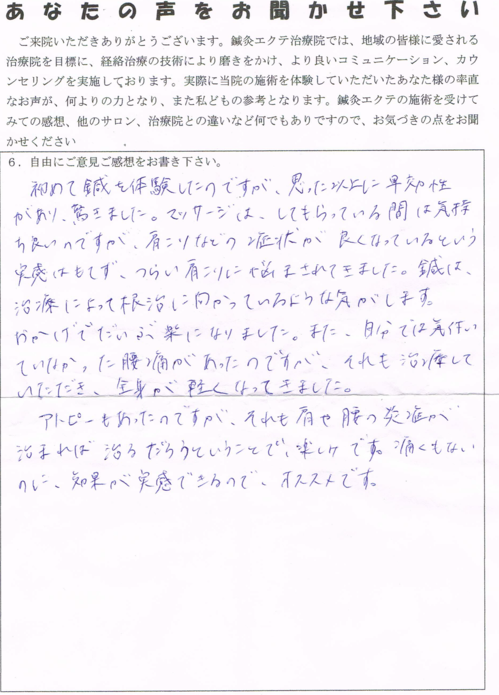 あなたの声をお聞かせ下さい
ご来院いただきありがとうございます。鍼灸エクテ治療院では、地域の皆様に愛される
治療院を目標に、経絡治療の技術により磨きをかけ、より良いコミュニケーション、カウ
ンセリングを実施しております。実際に当院の施術を体験していただいたあなた様の率直
なお声が、何よりの力となり、また私どもの参考となります。鍼灸エクテの施術を受けて
みての感想、他のサロン、治療院との違いなど何でもありですので、お気づきの点をお聞
かせください
6．自由にご意見ご感想をお書き下さい。
初めて鍼を体験したのですが、思った以上に早効性
があり、驚きました。マッサージは、してもらっている間は気持
ち良いのですが、肩こりなどの症状が良くなっているという
実感はもてず、つらい肩こりに悩まされてきました。鍼は、
治療によって根治に向かっているような気がします。
おかげでだいぶ楽になりました。また、自分では気付い
ていなかった腰痛があったのですが、それも治療して
いただき、全身が軽くなってきました。
アトピーもあったのですが、それも肩や腰の炎症が
治まれば治るだろうということで、楽しみです。痛くもない
のに、効果が実感できるので、オススメです。